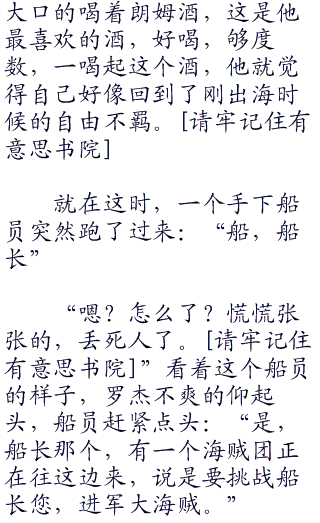 大口的喝着朗姆酒，这是他
最喜欢的酒，好喝，够度
数，一喝起这个酒，他就觉
得自己好像回到了刚出海时
候的自由不羁。[请牢记住有
意思书院]
就在这时，一个手下船
员突然跑了过来：“船，船
长”
“嗯？怎么了？慌慌张
张的，丢死人了。[请牢记住
有意思书院]”看着这个船员
的样子，罗杰不爽的仰起
头，船员赶紧点头：“是，
船长那个，有一个海贼团正
在往这边来，说是要挑战船
长您，进军大海贼。”